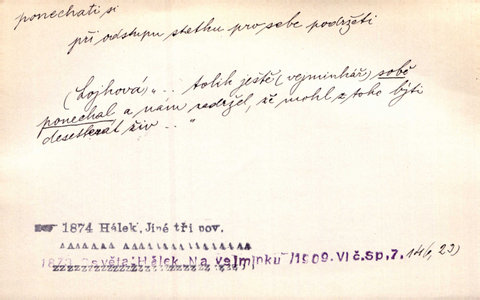 ponechati si
při odstupu statku pro sebe podržeti
(Lojhová) „.. tolik ještě (vejminkář) sobě
ponechal a nám zadržel, že mohl z toho býti
desetkrát živ .. “
1874 Hálek, Jiné tři nov.
Hálek, Na vejminku /1909. Vl č. Sp, 7. 146, 23)